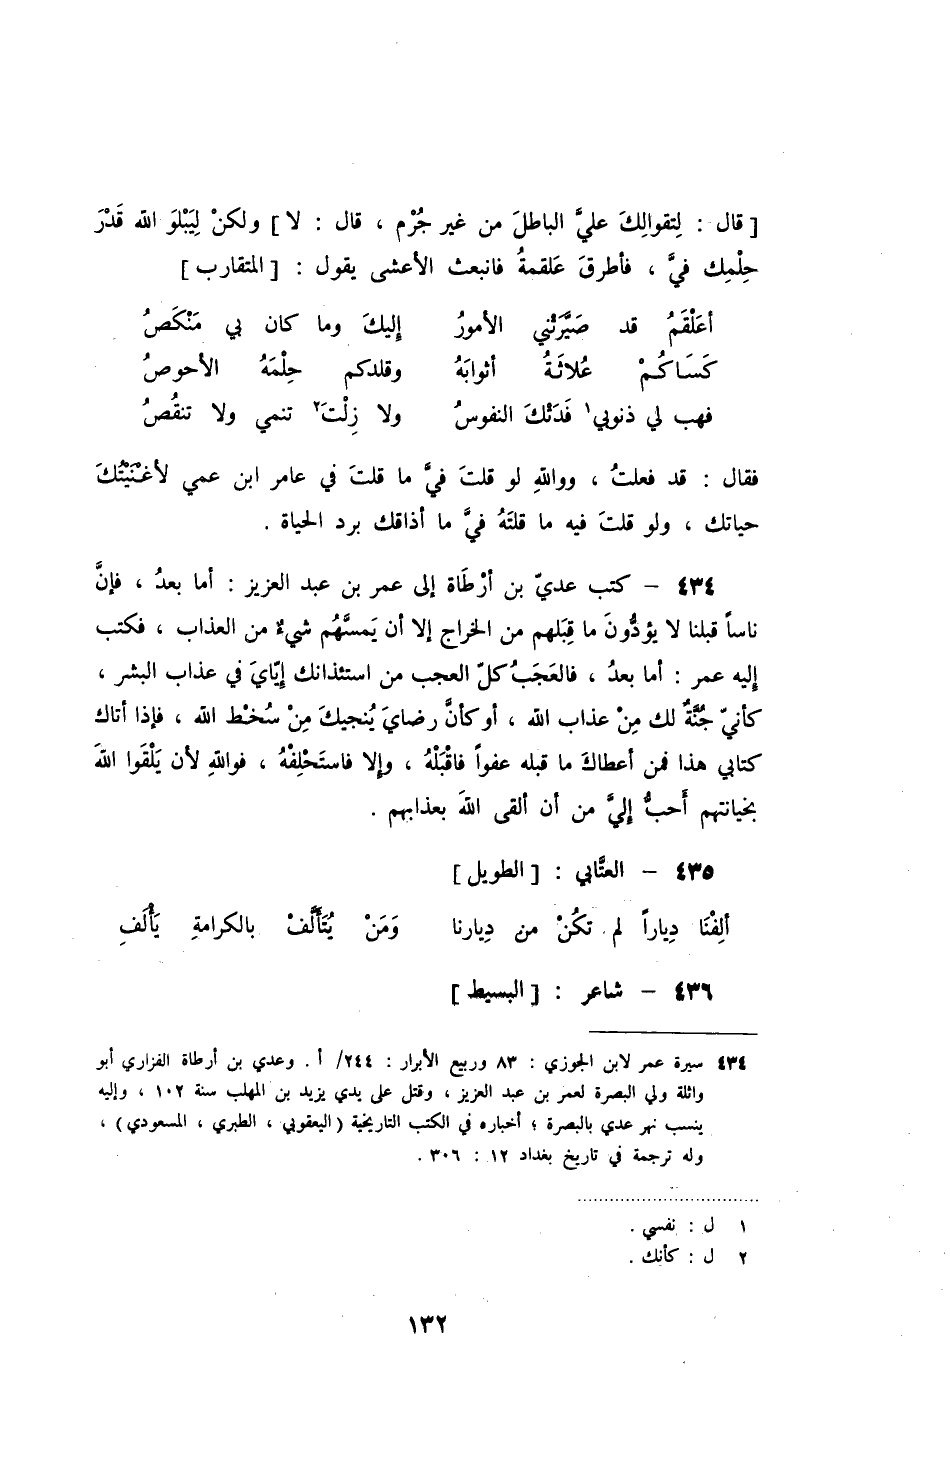 [ قال : لِتقوالِكَ عليَّ الباطلَ من غير جُرْم ، قال : لا ] ولكنْ لِيَبْلوَ الله قَدْرَ
حِلْمِك فيَّ ، فأطرقَ عَلقمةُ فانبعث الأعشى يقول : [ المتقارب ]
أعَلْقَمُ قد صَيَّرَتْني الأمورُ إليكَ وما كان بي مَنْكَصُ
كَسَاكُمْ عُلاثَةُ أثوابَهُ وقلدكم حِلْمَهُ الأحوصُ
فهب لي ذنوبي١ فَدَتْكَ النفوسُ ولا زِلْتَ٢ تنمي ولا تنقُصُ
فقال : قد فعلتُ ، وواللهِ لو قلتَ فيَّ ما قلتَ في عامر ابن عمي لأغْنَيْتُكَ
حياتك ، ولو قلتَ فيه ما قلتَهُ فيَّ ما أذاقك برد الحياة .
٤٣٤ – كتب عديّ بن أرْطَاة إلى عمر بن عبد العزيز : أما بعدُ ، فإنَّ
ناساً قبلنا لا يؤدُّونَ ما قِبَلهم من الخراج إلا أن يَمسَّهُم شيءٌ من العذاب ، فكتب
إليه عمر : أما بعدُ ، فالعَجَبُ كلّ العجب من استئذانك إيّايَ في عذاب البشر ،
كأنيّ جُنَّةٌ لك مِنْ عذاب الله ، أو كأنَّ رضايَ يُنجيكَ مِنْ سُخْط الله ، فإذا أتاك
كتابي هذا فمن أعطاكَ ما قبله عفواً فاقْبَلْهُ ، وإلا فاستَحْلِفْهُ ، فواللهِ لأن يَلْقَوا اللهَ
بخيانتهم أَحبُّ إليَّ من أن ألقى اللهَ بعذابهم .
٤٣٥ – العتَّابي : [ الطويل ]
ألِفْنَا دِياراً لم تكُنْ من دِيارنا وَمَنْ يُتَأَلَّفْ بالكرامةِ يَأْلَفِ
٤٣٦ – شاعر : [ البسيط ]
٤٣٤ سيرة عمر لابن الجوزي : ٨٣ وربيع الأبرار : ٢٤٤/ أ . وعدي بن أرطاة الفزاري أبو
واثلة ولي البصرة لعمر بن عبد العزيز ، وقتل على يدي يزيد بن المهلب سنة ١٠٢ ، وإليه
ينسب نهر عدي بالبصرة ؛ أخباره في الكتب التاريخية ( اليعقوبي ، الطبري ، المسعودي ) ،
وله ترجمة في تاريخ بغداد ١٢ : ٣٠٦ .
١ ل : نفسي .
٢ ل : كأنك .
١٣٢